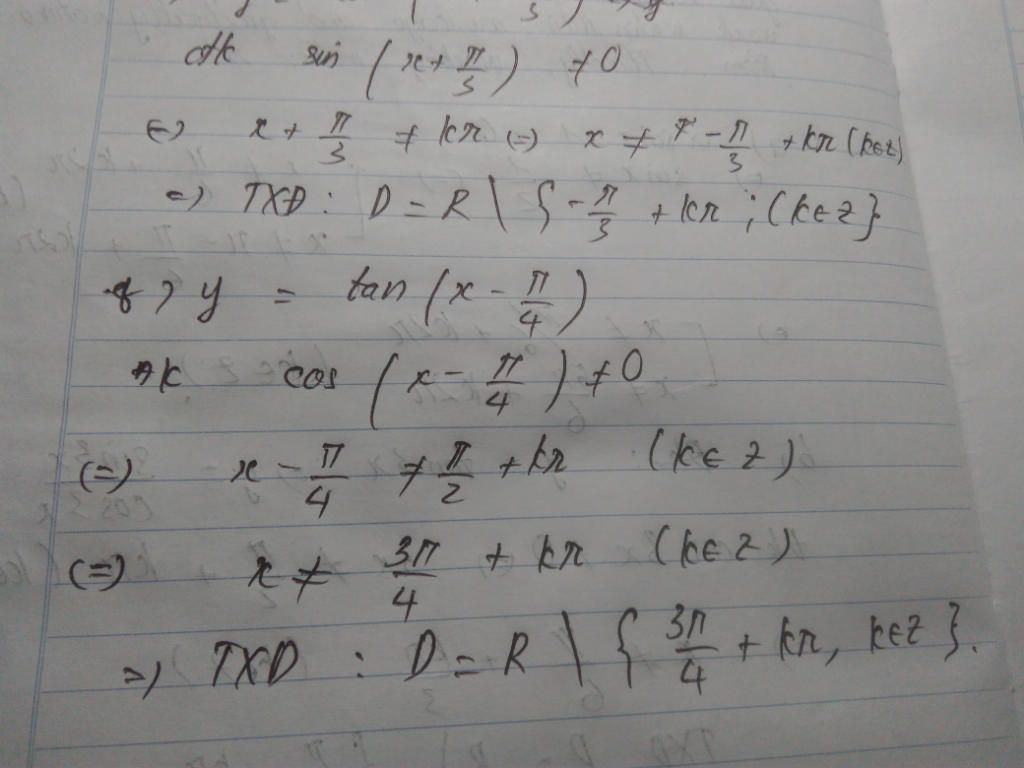 đk sin (x + π/3) ≠ 0
(=) x + π/3 ≠ kπ (=) x ≠ - π/3 + kπ (k∈Z)
=) TXĐ : D = R \ { -π/3 + kπ ; (k∈Z}
f) y = tan (x - π/4)
ĐK cos (x - π/4) ≠ 0
(=) x - π/4 ≠ π/2 + kπ (k∈Z)
(=) x ≠ 3π/4 + kπ (k∈Z)
=) TXD : D = R \ { 3π/4 + kπ, k∈Z }.